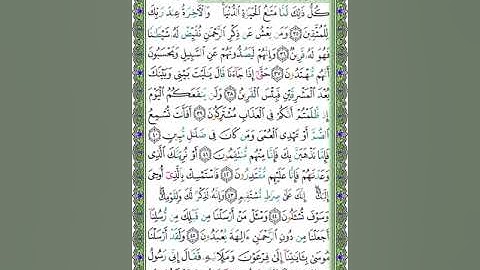 كُلُّ ذَٰلِكَ لَمَّا مَتَٰعُ ٱلْحَيَوٰةِ ٱلدُّنْيَا ۚ وَٱلْءَاخِرَةُ عِندَ رَبِّكَ
لِلْمُتَّقِينَ ۝٣٥ وَمَن يَعْشُ عَن ذِكْرِ ٱلرَّحْمَٰنِ نُقَيِّضْ لَهُۥ شَيْطَٰنًا
فَهُوَ لَهُۥ قَرِينٌ ۝٣٦ وَإِنَّهُمْ لَيَصُدُّونَهُمْ عَنِ ٱلسَّبِيلِ وَيَحْسَبُونَ
أَنَّهُم مُّهْتَدُونَ ۝٣٧ حَتَّىٰٓ إِذَا جَآءَنَا قَالَ يَٰلَيْتَ بَيْنِى وَبَيْنَكَ
بُعْدَ ٱلْمَشْرِقَيْنِ فَبِئْسَ ٱلْقَرِينُ ۝٣٨ وَلَن يَنفَعَكُمُ ٱلْيَوْمَ
إِذ ظَّلَمْتُمْ أَنَّكُمْ فِى ٱلْعَذَابِ مُشْتَرِكُونَ ۝٣٩ أَفَأَنتَ تُسْمِعُ
ٱلصُّمَّ أَوْ تَهْدِى ٱلْعُمْىَ وَمَن كَانَ فِى ضَلَٰلٍ مُّبِينٍ ۝٤٠
فَإِمَّا نَذْهَبَنَّ بِكَ فَإِنَّا مِنْهُم مُّنتَقِمُونَ ۝٤١ أَوْ نُرِيَنَّكَ ٱلَّذِى
وَعَدْنَٰهُمْ فَإِنَّا عَلَيْهِم مُّقْتَدِرُونَ ۝٤٢ فَٱسْتَمْسِكْ بِٱلَّذِىٓ أُوحِىَ
إِلَيْكَ ۖ إِنَّكَ عَلَىٰ صِرَٰطٍ مُّسْتَقِيمٍ ۝٤٣ وَإِنَّهُۥ لَذِكْرٌ لَّكَ وَلِقَوْمِكَ ۖ
وَسَوْفَ تُسْـَٔلُونَ ۝٤٤ وَسْـَٔلْ مَنْ أَرْسَلْنَا مِن قَبْلِكَ مِن رُّسُلِنَآ
أَجَعَلْنَا مِن دُونِ ٱلرَّحْمَٰنِ ءَالِهَةً يُعْبَدُونَ ۝٤٥ وَلَقَدْ أَرْسَلْنَا
مُوسَىٰ بِـَٔايَٰتِنَآ إِلَىٰ فِرْعَوْنَ وَمَلَإِي۟هِۦ فَقَالَ إِنِّى رَسُولُ